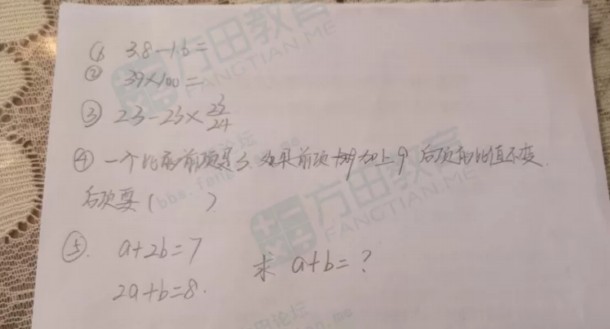 ① 3.8-1.6=
② 39×100=
③ 23-23×23/24
④ 一个比的前项是3 如果前项加上9 后项的比值不变
后项要( )
⑤. a+2b=7
2a+b=8.
求 a+b=?
方田教育
FANGTIAN.ME
方田教育
FANGTIAN.ME